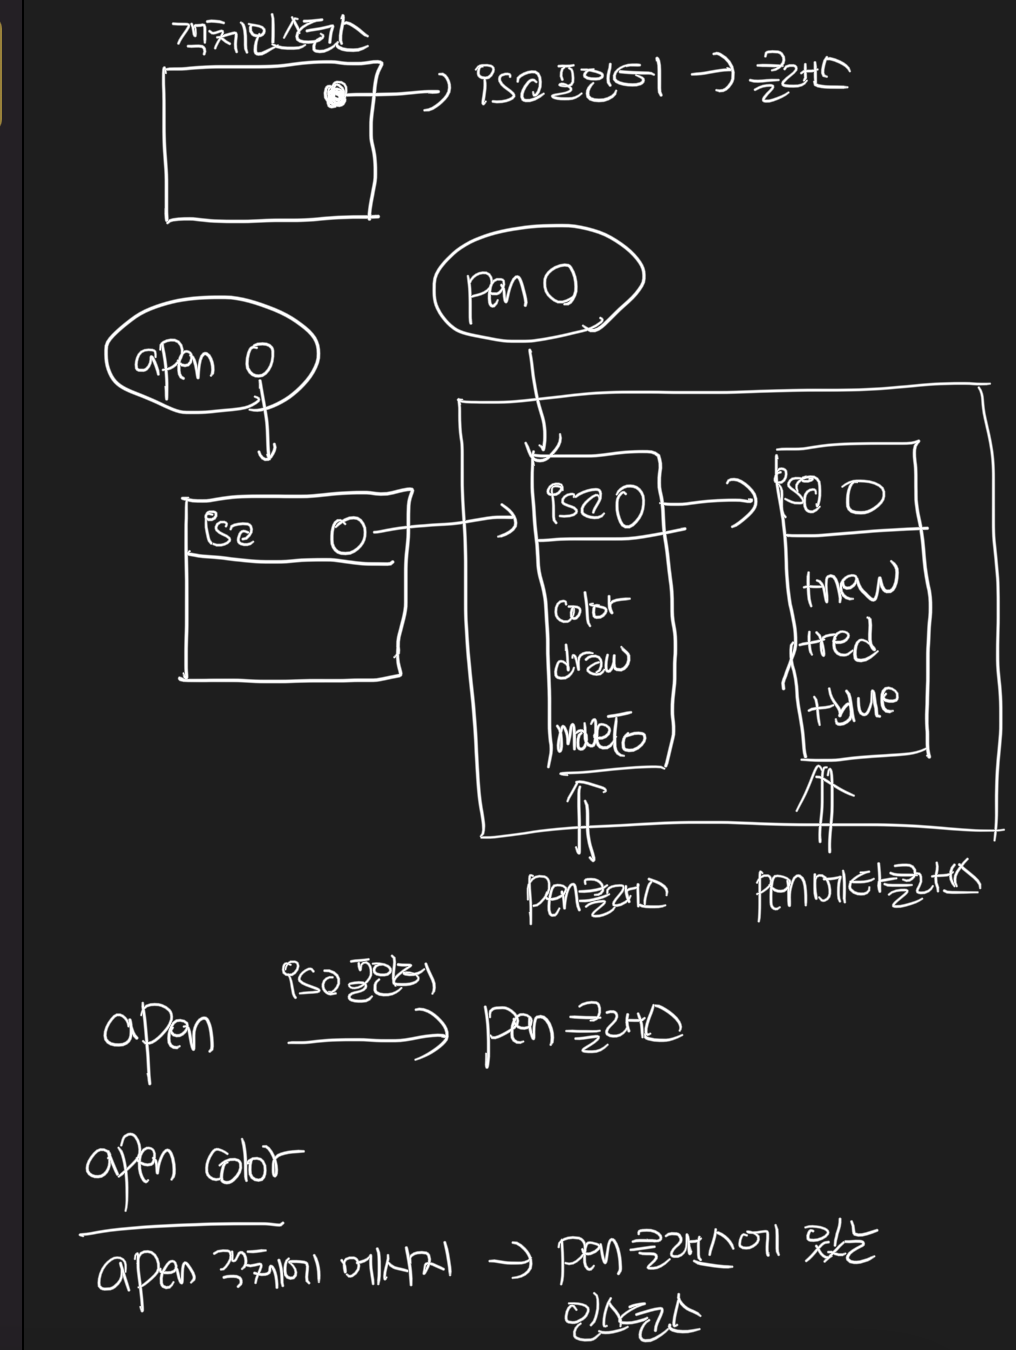 객체인스턴스
isa포인터 → 클래스
pen
apen
isa
isa
isa
color
draw
moveTo
+new
+red
+blue
pen클래스
pen메타클래스
isa포인터
apen → pen 클래스
apen color
apen 객체에 메시지 → pen클래스에 있는
인스턴스